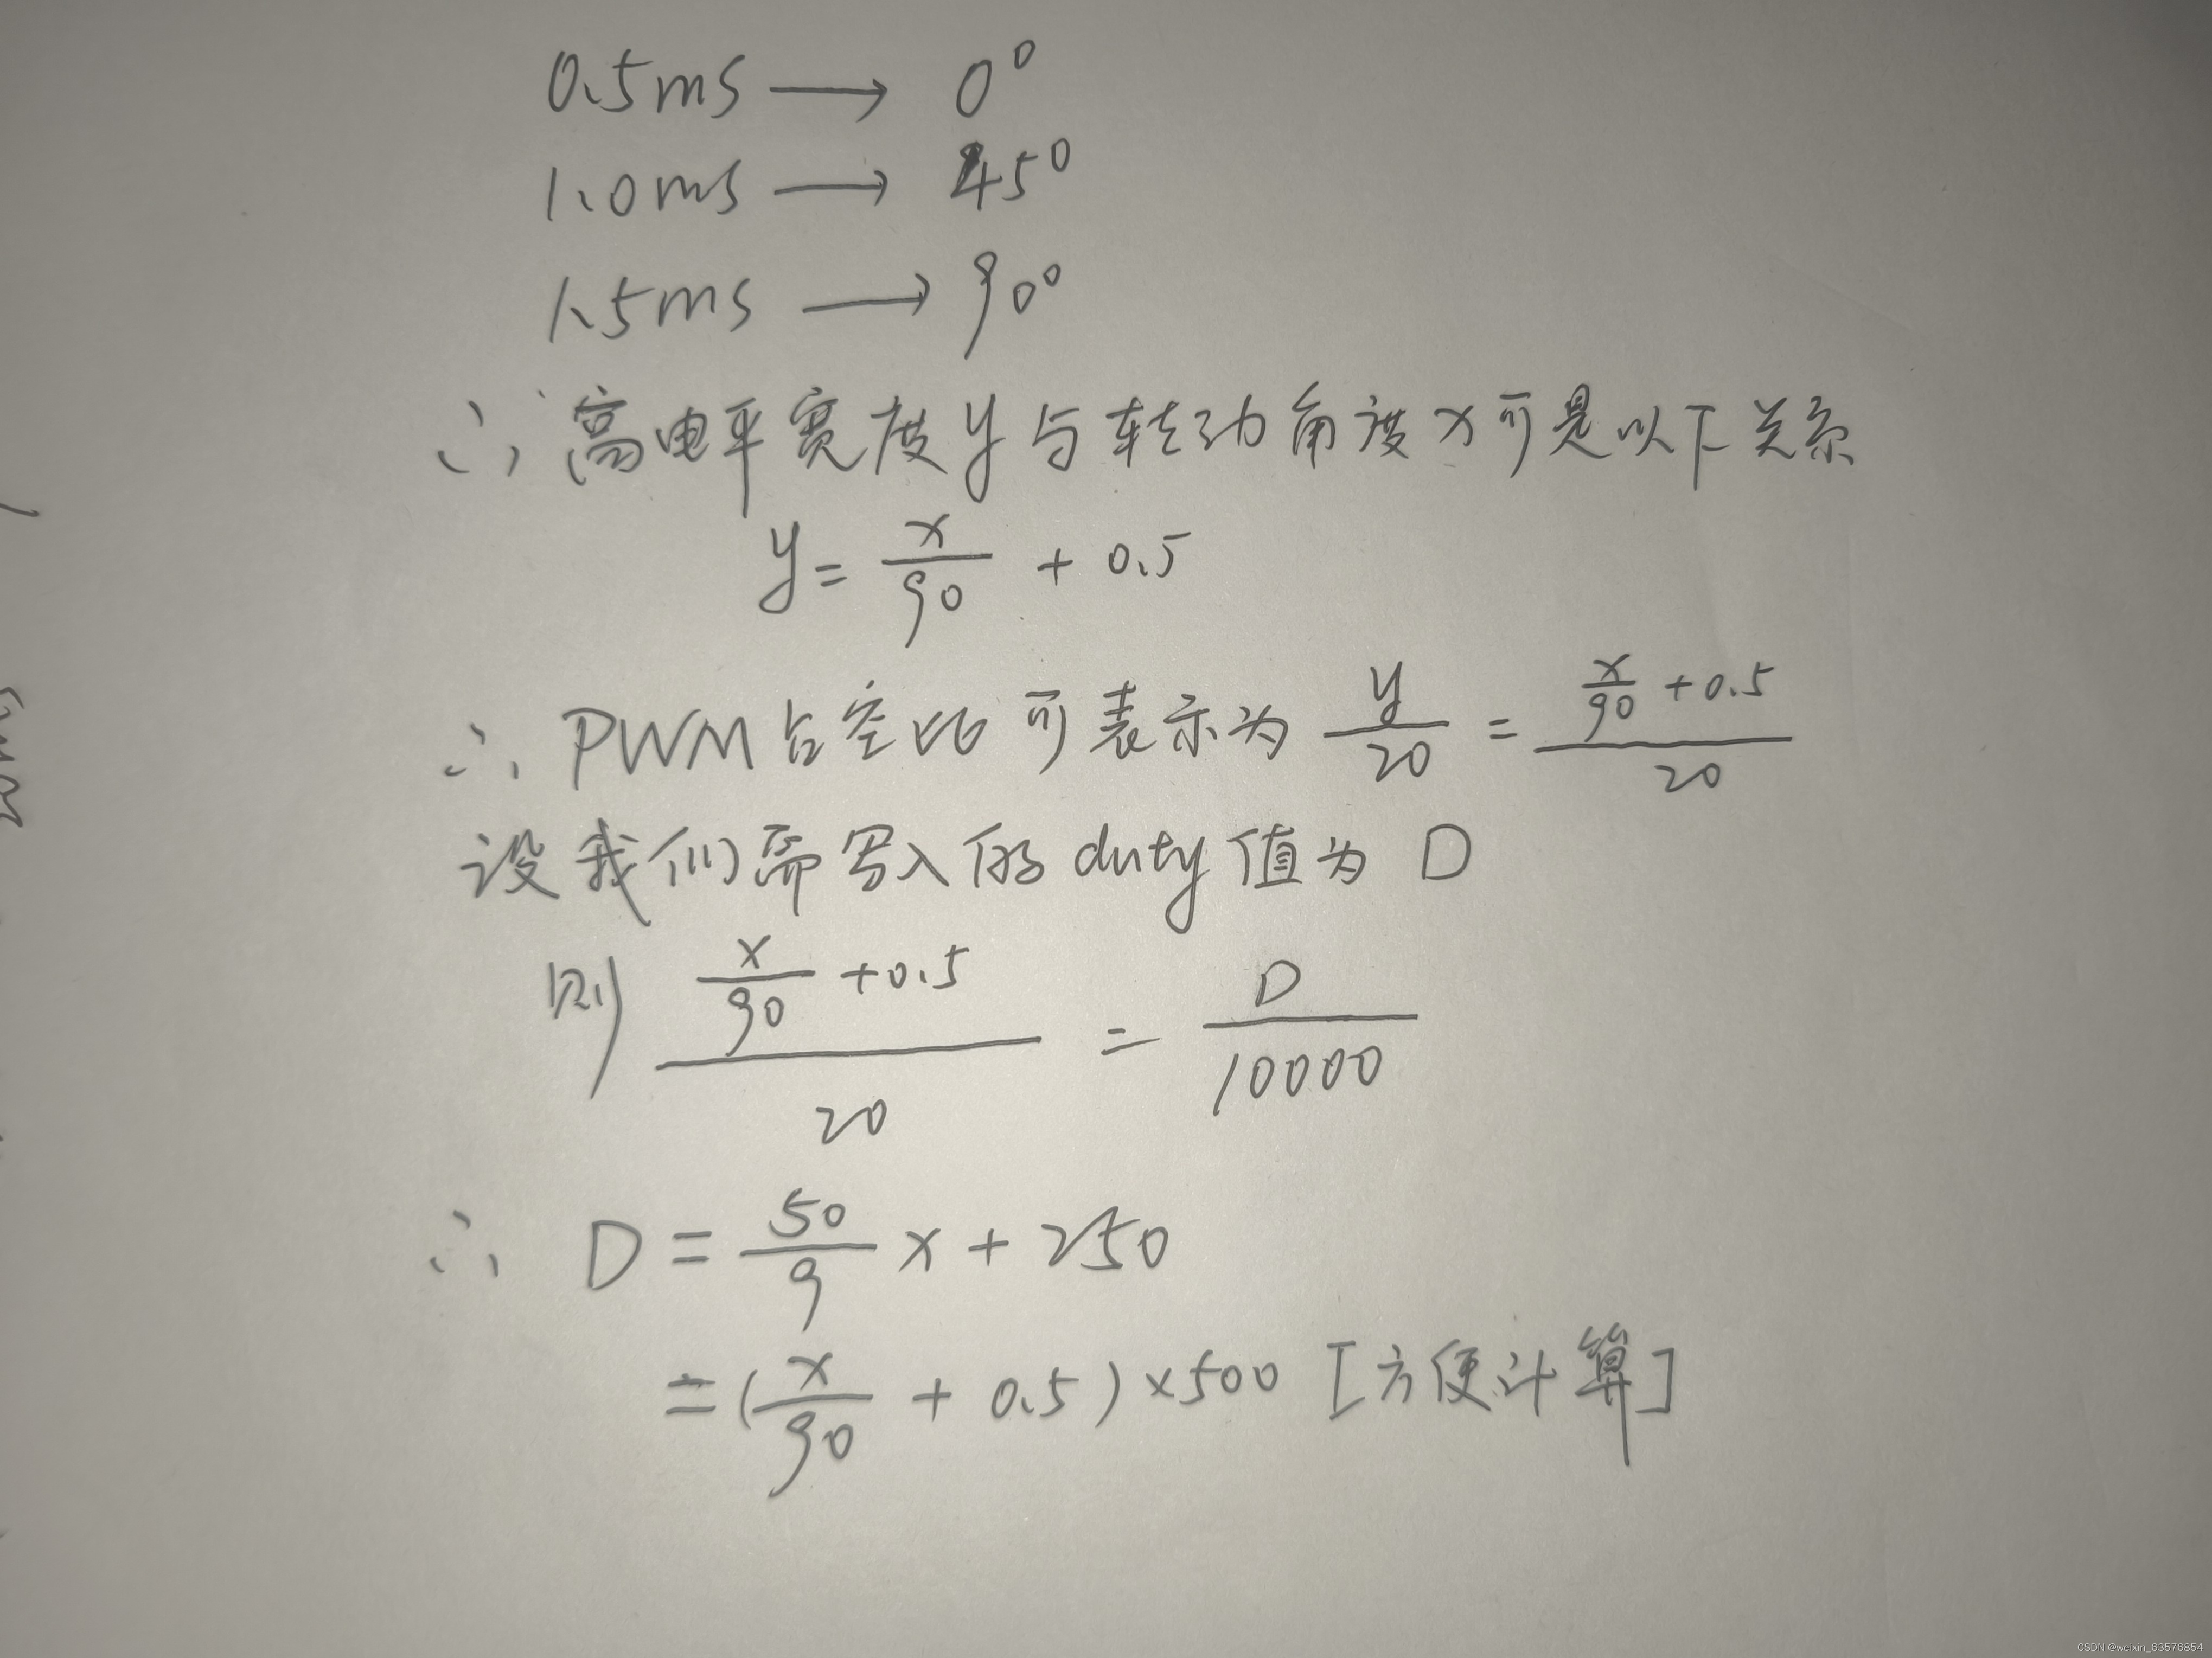 0.5ms → 0°
1.0ms → 45°
1.5ms → 90°
∴ 高电平宽度y与转动角度x可是以下关系
y = x/90 + 0.5
∴ PWM占空比可表示为 y/20 = (x/90 + 0.5)/20
设我们需写入的duty值为 D
则 (x/90 + 0.5)/20 = D/10000
∴ D = 50/9 x + 250
= (x/90 + 0.5) × 500 [方便计算]
CSDN @weixin_63576854